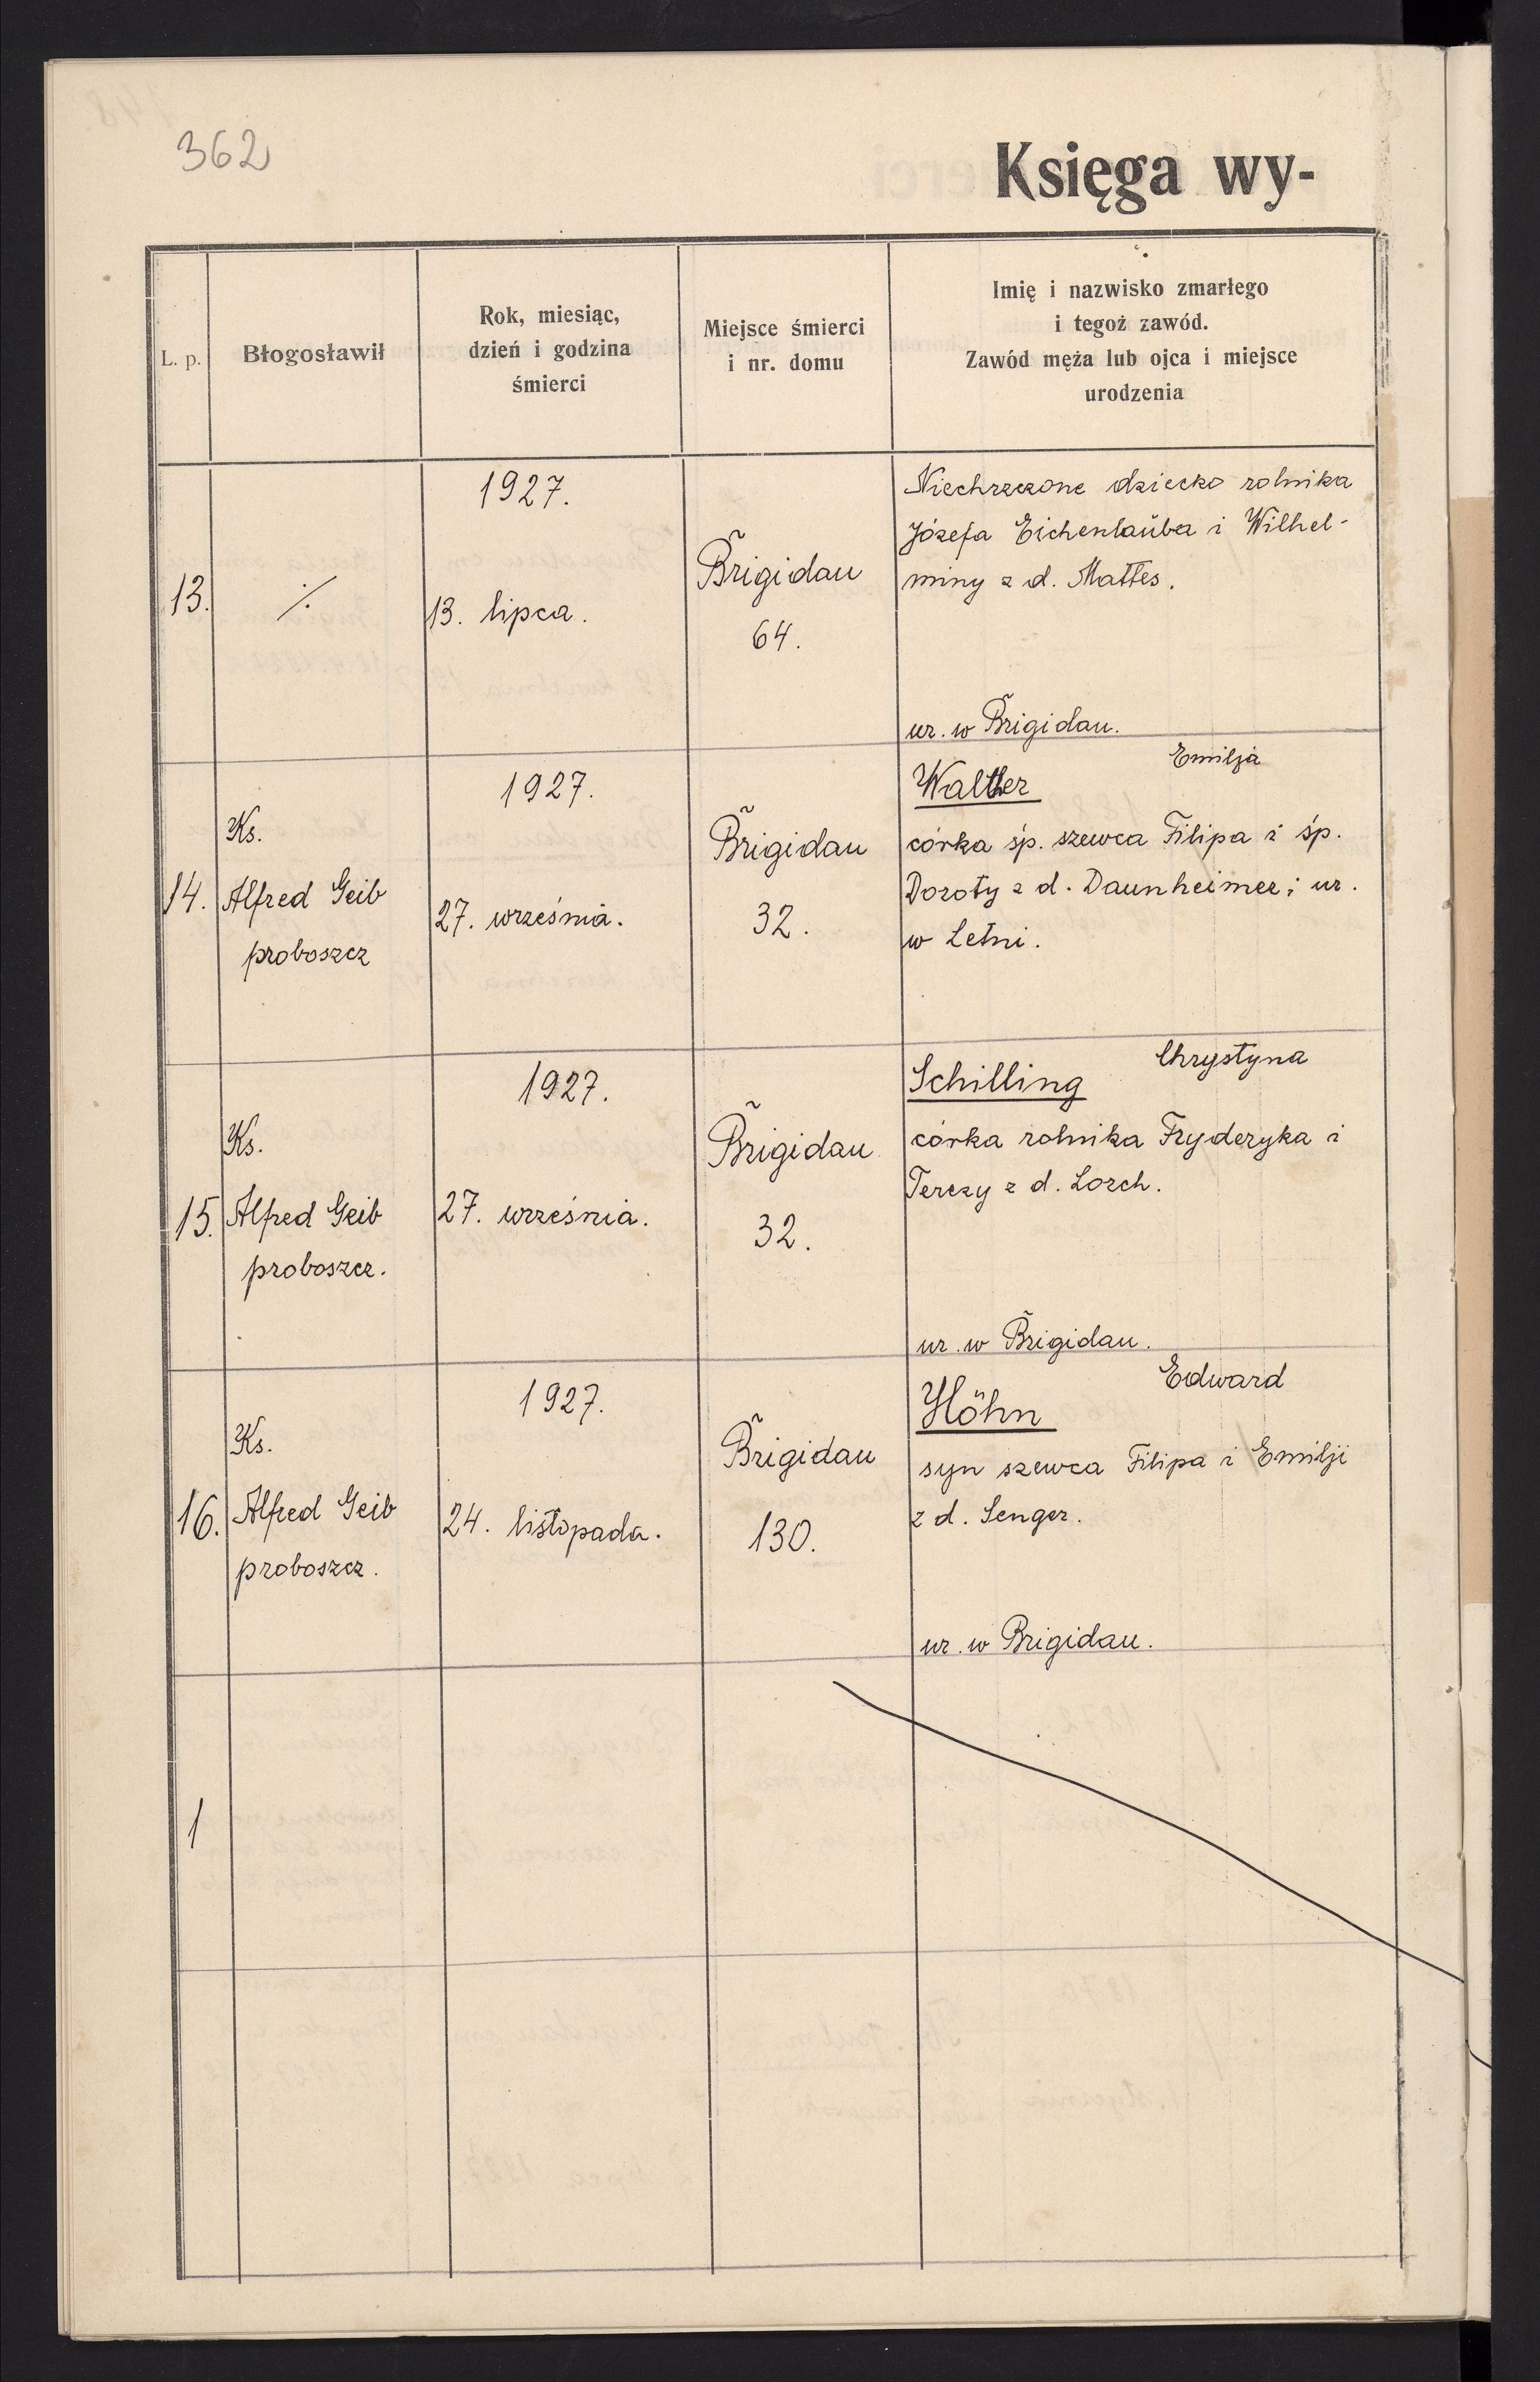 362
Księga wy-
L. p.
Błogosławił
Rok, miesiąc,
dzień i godzina
śmierci
Miejsce śmierci
i nr. domu
Imię i nazwisko zmarłego
i tegoż zawód.
Zawód męża lub ojca i miejsce
urodzenia
13.
⁒
1927.
13. lipca.
Brigidau
64.
Niechrzczone dziecko rolnika
Józefa Eichenlauba i Wilhel-
miny z d. Mattes.
ur. w Brigidau.
14.
Ks.
Alfred Geib
proboszcz
1927.
27. września.
Brigidau
32.
Emilja
Walther
córka śp. szewca Filipa i śp.
Doroty z d. Daunheimer; ur.
w Letni.
15.
Ks.
Alfred Geib
proboszcz.
1927.
27. września.
Brigidau
32.
Chrystyna
Schilling
córka rolnika Fryderyka i
Terezy z d. Lorch.
ur. w Brigidau.
16.
Ks.
Alfred Geib
proboszcz.
1927.
24. listopada.
Brigidau
130.
Edward
Höhn
syn szewca Filipa i Emilji
z d. Senger.
ur. w Brigidau.
1